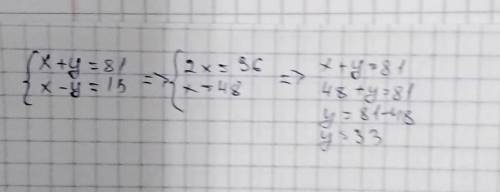 { x+y=81
x-y=15 => { 2x=96
x=48 => x+y=81
48+y=81
y=81-48
y=33